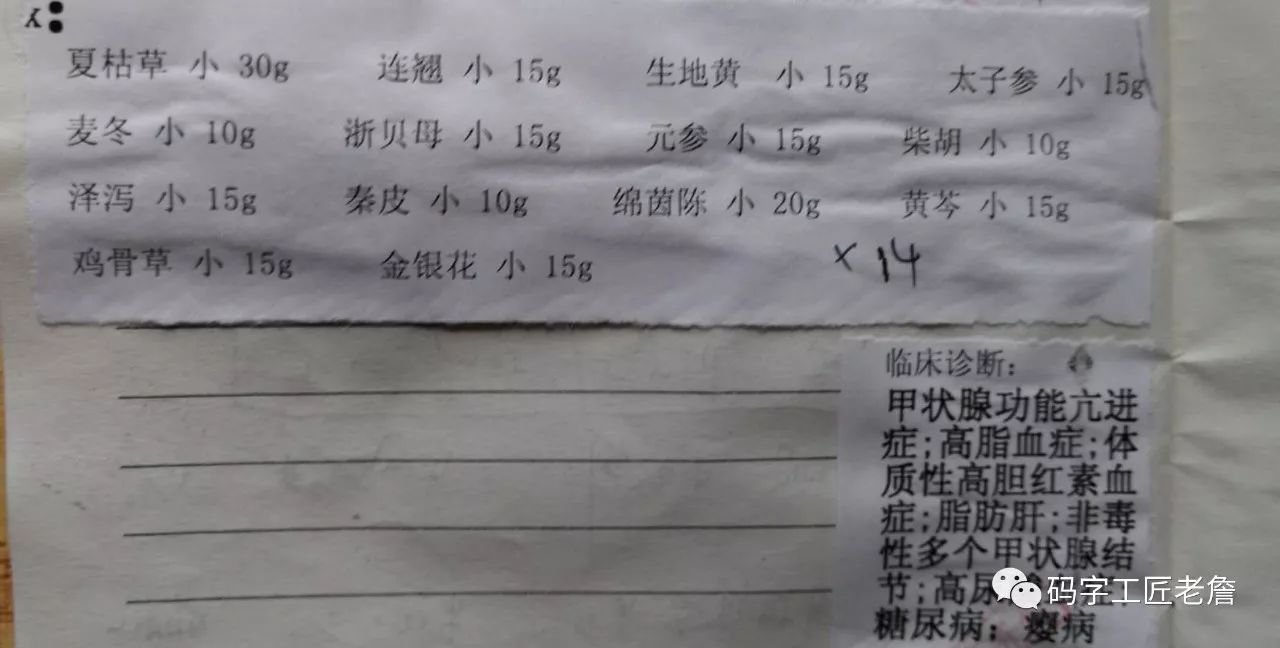 夏枯草 小 30g 连翘 小 15g 生地黄 小 15g 太子参 小 15g
麦冬 小 10g 浙贝母 小 15g 元参 小 15g 柴胡 小 10g
泽泻 小 15g 秦皮 小 10g 绵茵陈 小 20g 黄芩 小 15g
鸡骨草 小 15g 金银花 小 15g
×14
临床诊断:
甲状腺功能亢进
症;高脂血症;体
质性高胆红素血
症;脂肪肝;非毒
性多个甲状腺结
节;高尿
糖尿病;瘿病
码字工匠老詹